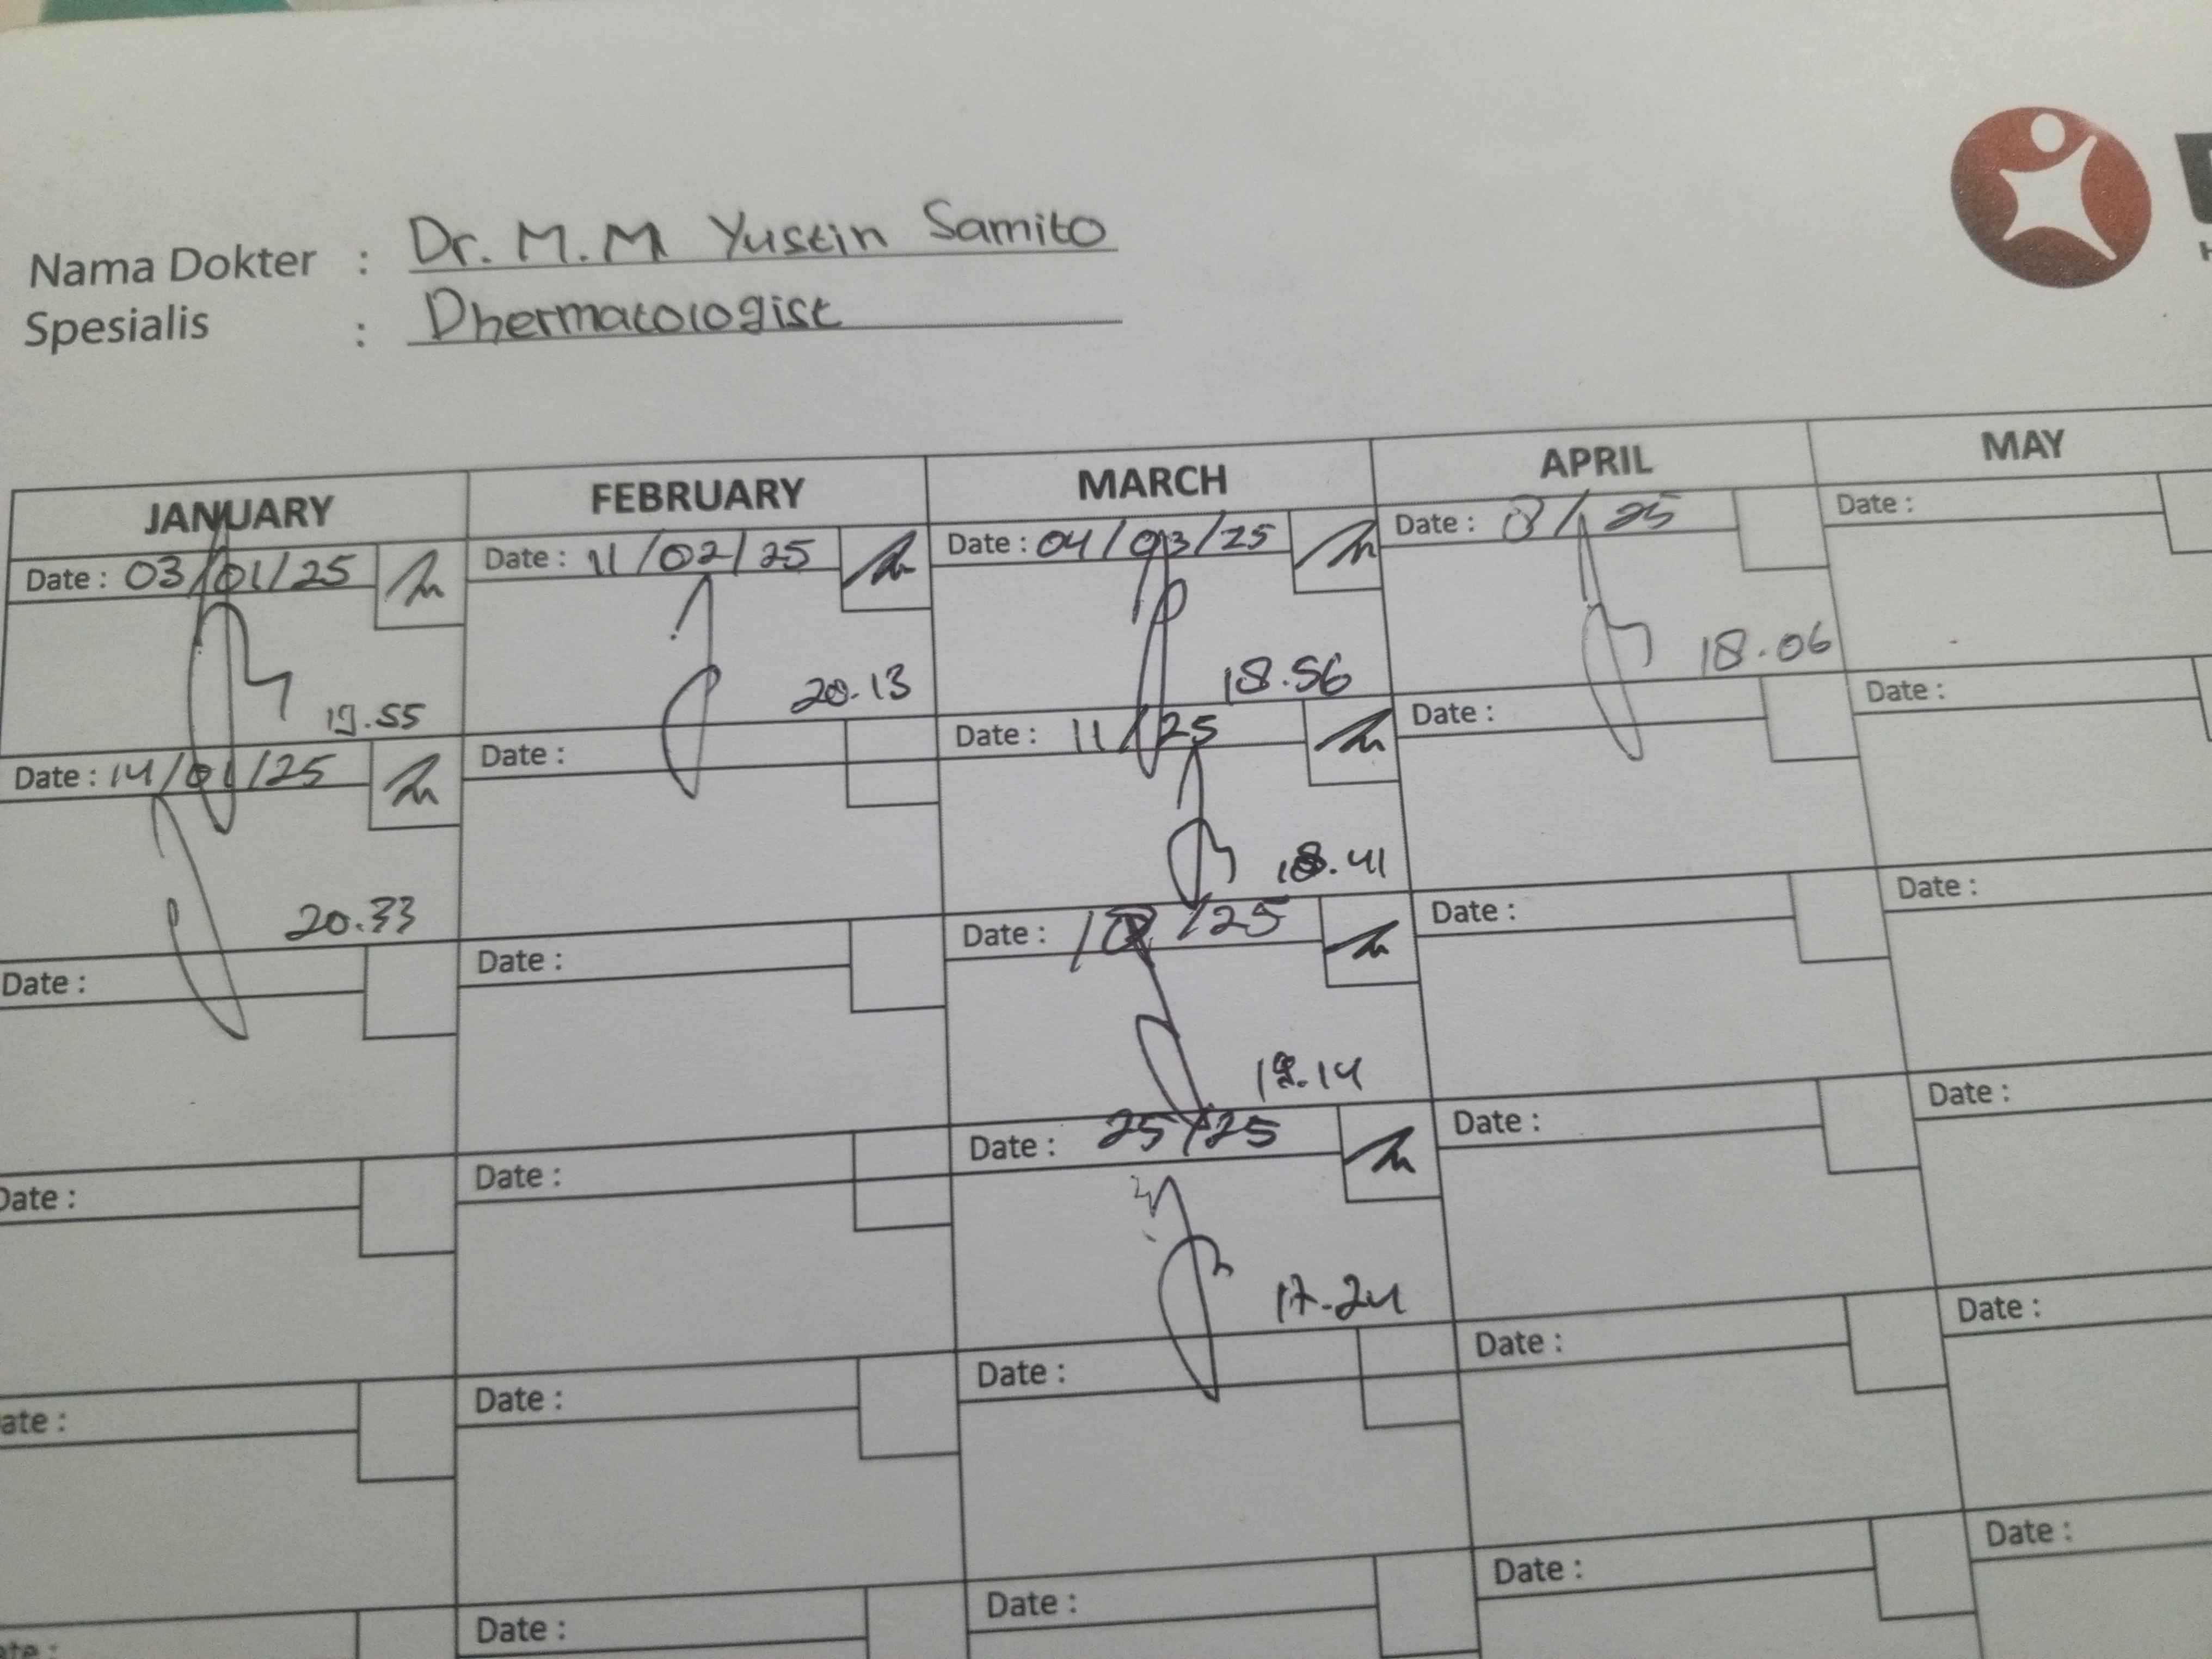 Nama Dokter : Dr. M. M Yustin Samito
Spesialis : Dhermatologist
JANUARY FEBRUARY MARCH APRIL MAY
Date : 03/01/25 Date : 11/02/25 Date : 04/03/25 Date : 8/25 Date :
19.55 20.13 18.56 18.06
Date : 14/01/25 Date : Date : 11/25 Date : Date :
20.33 18.41
Date : Date : Date : /25 Date : Date :
Date : Date : Date : 25/25 Date : Date :
17.24
ate : Date : Date : Date : Date :
Date : Date : Date : Date :